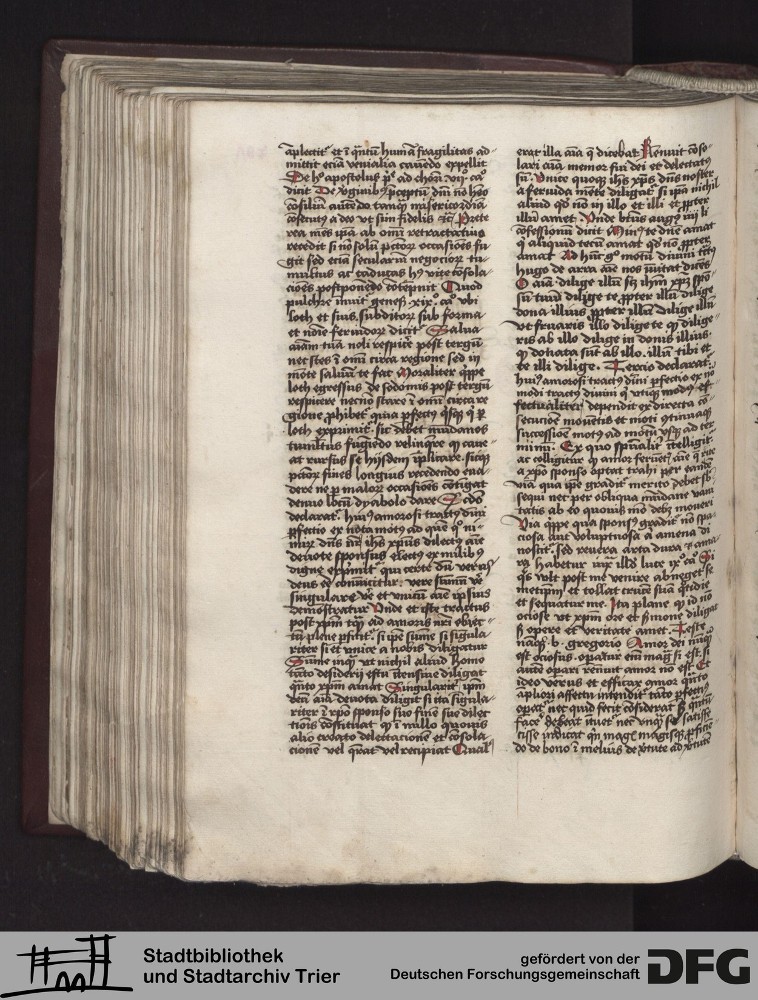 aplectit et i qntu humana fragilitas ad-
mittit ecia venialia cauedo expellit
De hoc apostolus p ad chorin vij ca
dicit De virginibus pceptu dni no heo
consiliu aute do tanq misericordia
cosecutus a deo vt sim fidelis etc Prete
rea mes ipa ab omi retractatiu
recedit si no solu pctor occasiões fu
git sed ecia seculariu negocior tu-
multus ac caducas hui vite cosola-
cioes postponedo cotepnit Quod
pulchre innuit genes xix ca vbi
loth et suis subditor sub forma
et noie feruidor dicit Salua
aiam tua noli respice post tergu
nec stes i omi circa regione sed in
monte saluu te fac Moraliter qppe
loth egressus de sodomis post tergu
respicere necno stare i omi circa re
gione phibet quia pfectus qsq q p
loth exprimit sic debet mudanos
tumltus fugiedo relinqre q caue
at rursus se hijsdem iplicare sicq
pctor fines longius recedendo eua
dere ne p malor occasiões cotigat
denuo locu dyabolo dare Scdo
declarat hui amorosi tractus diui
pfectio ex nota motus ad que q ni-
mir dns nr ihs xpus dilectus aie
deuote sponsus electus ex milibus
digne exprimit qui certe du verus
deus ee conuincitur vere summ ve
singulare ve et vnicu aie ipsius
demostratur Vnde et iste tractus
post xpm tqm ad amoris nri obiec-
tu plene pficit si ipe sume si sigula
riter si et vnice a nobis diligatur
Sume inq vt nichil aliud homo
tato desiderij estu itensiue diligat
qnto xpm amat Singulariter ipm
deu aia deuota diligit si ita sigula-
riter i xpo sponso suo fine sue dilec
tionis constituat q i nullo quouis
alio creato delectacione et cosola
cione vel qrat vel recipiat Qual
erat illa aia q dicebat Renuit coso-
lari aia memor fui dei et delectatus
su Vnice quoq ihs xps dns noster
a feruida mete diligat si ipa nichil
aliud qd no in illo et illi et propter
illu amet Vnde btus augus iiij li
cofessionu dicit Minus te dne amat
q aliquid tecu amat qd no propter te
amat Ad huc go motu diuini tctus
hugo de arra aie nos inuitat dices
O aia dilige illu scz ihm xpm spo-
su tuu dilige te propter illu dilige
dona illius propter illu dilige illu
vt fruaris illo dilige te q dilige-
ris ab illo dilige in donis illius
q donata sut ab illo illu tibi et
te illi dilige Tercio declarat
huius amorosi tractus diuini pfectio ex no
modi tractus diuini q vtiq modus ef-
fectualiter dependit ex directa co-
secucioe mouetis et moti gtinuaq
successioe motus ad motu vsq ad ter
minu Ex quo spualit itelligit
ac colligitur q amor feruens aie q rite
a xpo sponso optat trahi per eande
via qua ipe gradit merito debet sb
sequi nec per obliqua mudane vani
tatis ab eo quouis mo debet moueri
Via qppe qua sponsus gradit no spa-
ciosa aut voluptuosa a amena di
noscit sed reuera arta dura et ama
ra habetur iux illd luce ix ca Si
qs vlt post me venire abneget se
metipm et tollat cruce sua qtidie
et sequatur me Ita plane q id no
ociose vt xpm ore et sermone diligat
s opere et veritate amet Teste
naq b gregorio Amor dei nuqm
est ociosus operatur eni magna si est si
aute opari renuit amor no est Et
ideo verus et efficax amor qnto
apliori affectu intendit tato pfectius
operat nec quid fecit cosiderat s quantu
face debeat ituet nec vnqm se satisfe
cisse indicat qin magis magisq pficie
do de bono i melius de vtute ad vtute
Stadtbibliothek
und Stadtarchiv Trier
gefördert von der
Deutschen Forschungsgemeinschaft
DFG